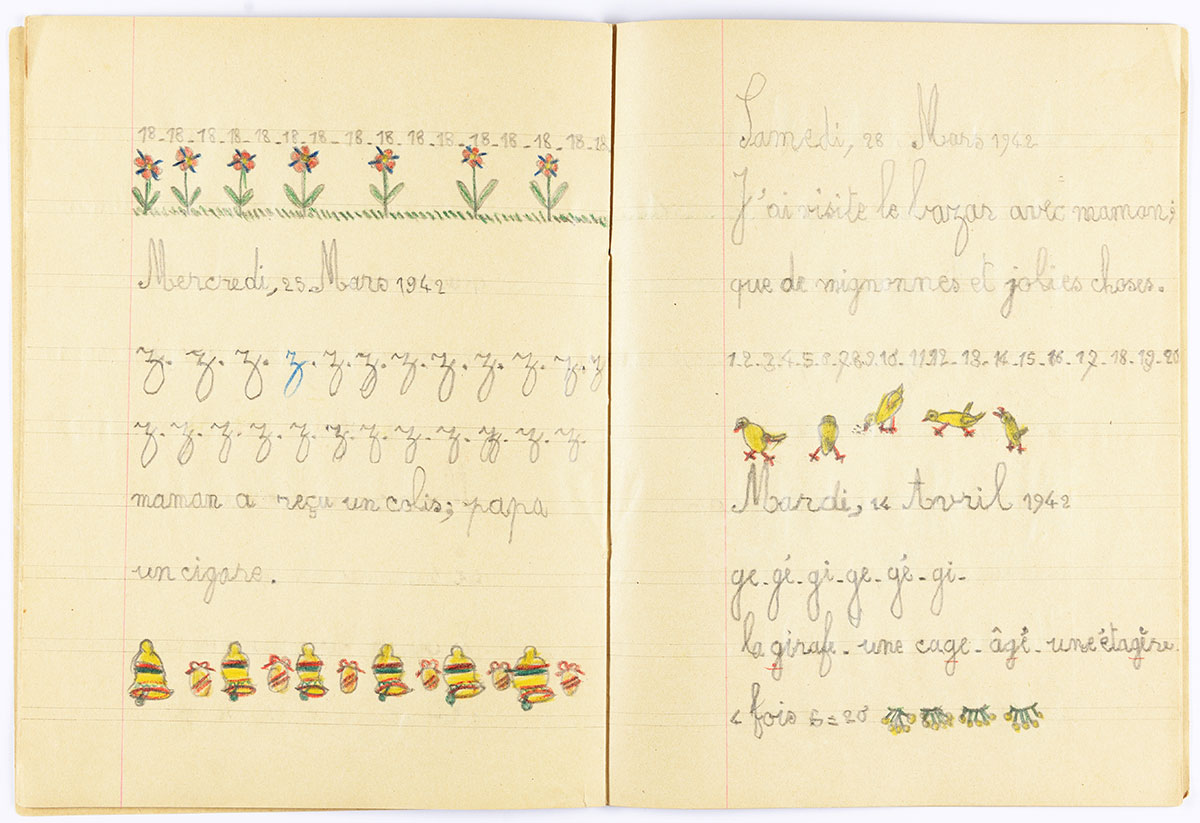 18-18-18-18-18-18-18-18-18-18-18-18-18-18-18
Mercredi, 25 Mars 1942
z. z. z. z. z. z. z. z. z. z. z. z. z
z. z. z. z. z. z. z. z. z. z. z. z.
maman a reçu un colis; papa
un cigare.
Samedi, 28 Mars 1942
J'ai visité le bazar avec maman;
que de mignonnes et jolies choses.
1-2-3-4-5-6-7-8-9-10-11-12-13-14-15-16-17-18-19-20
Mardi, 14 Avril 1942
ge-gé-gi-ge-gé-gi-
la girafe-une cage-âgé-une étagère.
4 fois 5=20